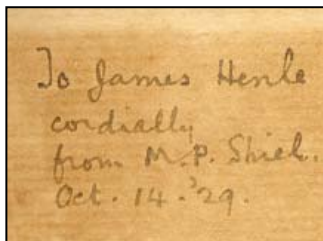 To James Henle
cordially
from M.P. Shiel.
Oct. 14. '29.